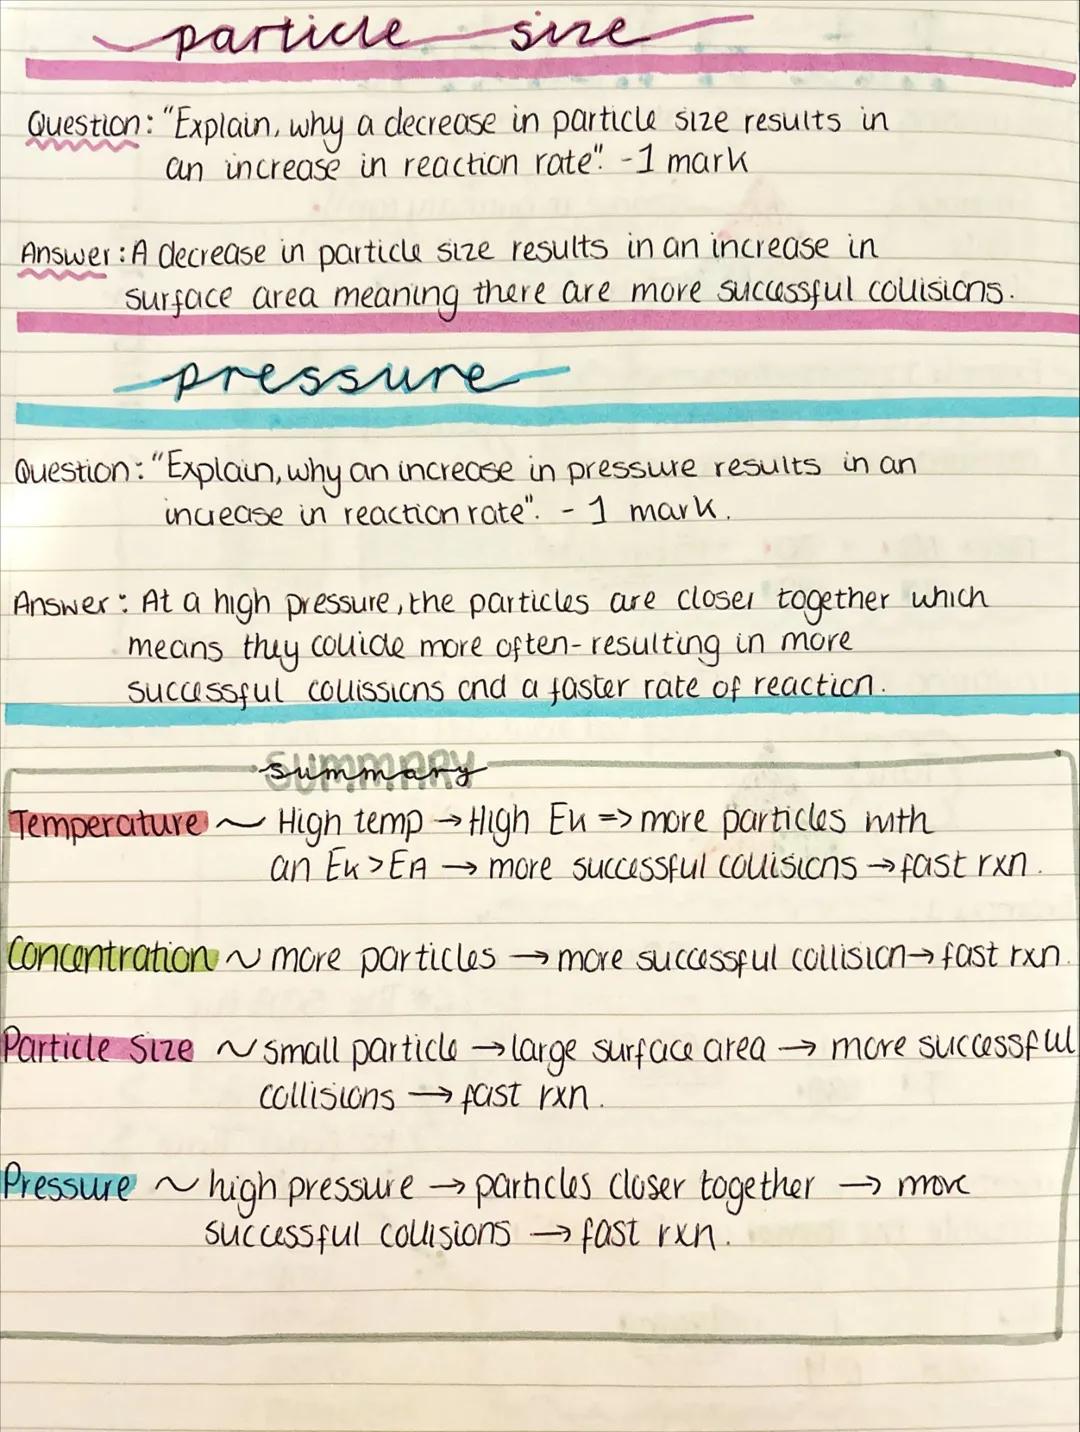 particle size
Question: "Explain, why a decrease in particle size results in
an increase in reaction rate". - 1 mark
Answer: A decrease in particle size results in an increase in
surface area meaning there are more successful collisions.
pressure
Question: "Explain, why an increase in pressure results in an
increase in reaction rate". - 1 mark.
Answer: At a high pressure, the particles are closer together which
means they collide more often - resulting in more
successful collissions and a faster rate of reaction.
SUMMARY
summary
Temperature ~ High temp → High Ek => more particles with
an Ek > EA → more successful collisions → fast rxn.
Concentration ~ more particles → more successful collision → fast rxn.
Particle Size ~ small particle → large surface area → more successful
collisions → fast rxn.
Pressure ~ high pressure → particles closer together → more
successful collisions → fast rxn.